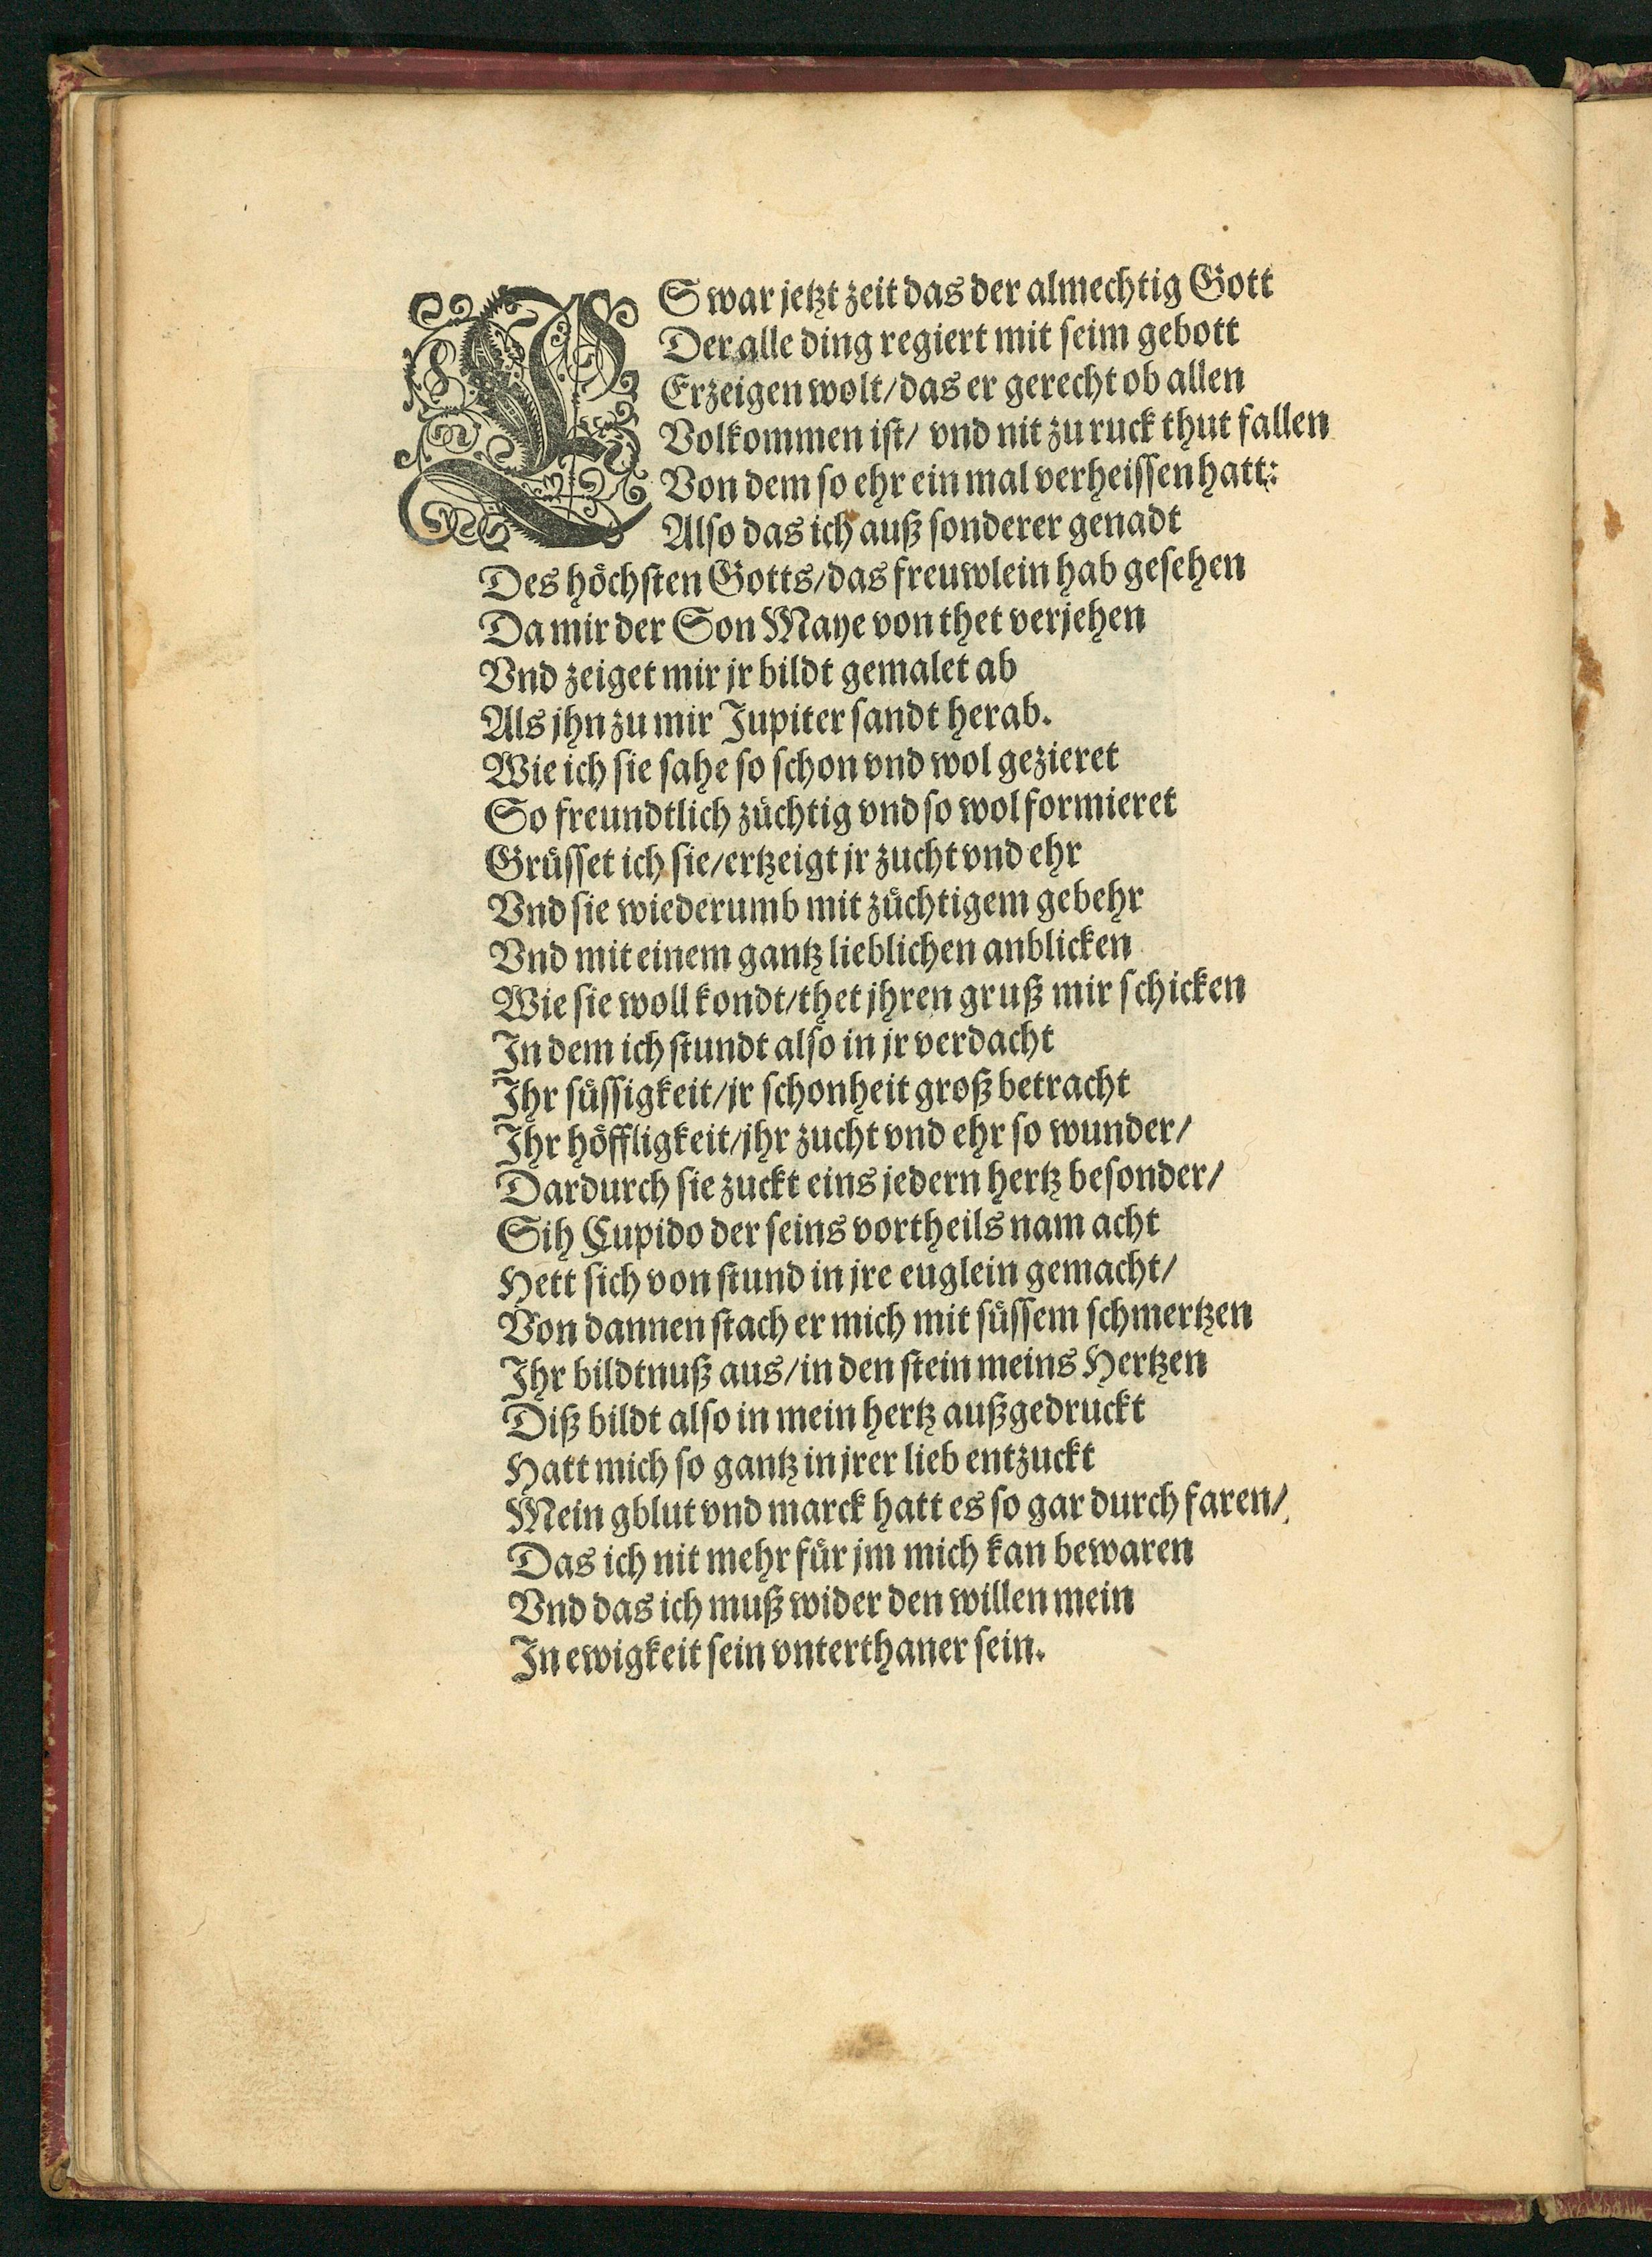 ES war jetzt zeit das der almechtig Gott
Der alle ding regiert mit seim gebott
Erzeigen wolt/das er gerecht ob allen
Volkommen ist/ vnd nit zu ruck thut fallen
Von dem so ehr ein mal verheissen hatt:
Also das ich auß sonderer genadt
Des höchsten Gotts/das freuwlein hab gesehen
Da mir der Son Maye von thet verjehen
Vnd zeiget mir jr bildt gemalet ab
Als jhn zu mir Jupiter sandt herab.
Wie ich sie sahe so schon vnd wol gezieret
So freundtlich züchtig vnd so wol formieret
Grüsset ich sie/ertzeigt jr zucht vnd ehr
Vnd sie wiederumb mit züchtigem gebehr
Vnd mit einem gantz lieblichen anblicken
Wie sie woll kondt/thet jhren gruß mir schicken
In dem ich stundt also in jr verdacht
Ihr süssigkeit/jr schonheit groß betracht
Ihr höffligkeit/jhr zucht vnd ehr so wunder/
Dardurch sie zuckt eins jedern hertz besonder/
Sih Cupido der seins vortheils nam acht
Hett sich von stund in jre euglein gemacht/
Von dannen stach er mich mit süssem schmertzen
Ihr bildtnuß aus/in den stein meins Hertzen
Diß bildt also in mein hertz außgedruckt
Hatt mich so gantz in jrer lieb entzuckt
Mein gblut vnd marck hatt es so gar durch faren/
Das ich nit mehr für jm mich kan bewaren
Vnd das ich muß wider den willen mein
In ewigkeit sein vnterthaner sein.